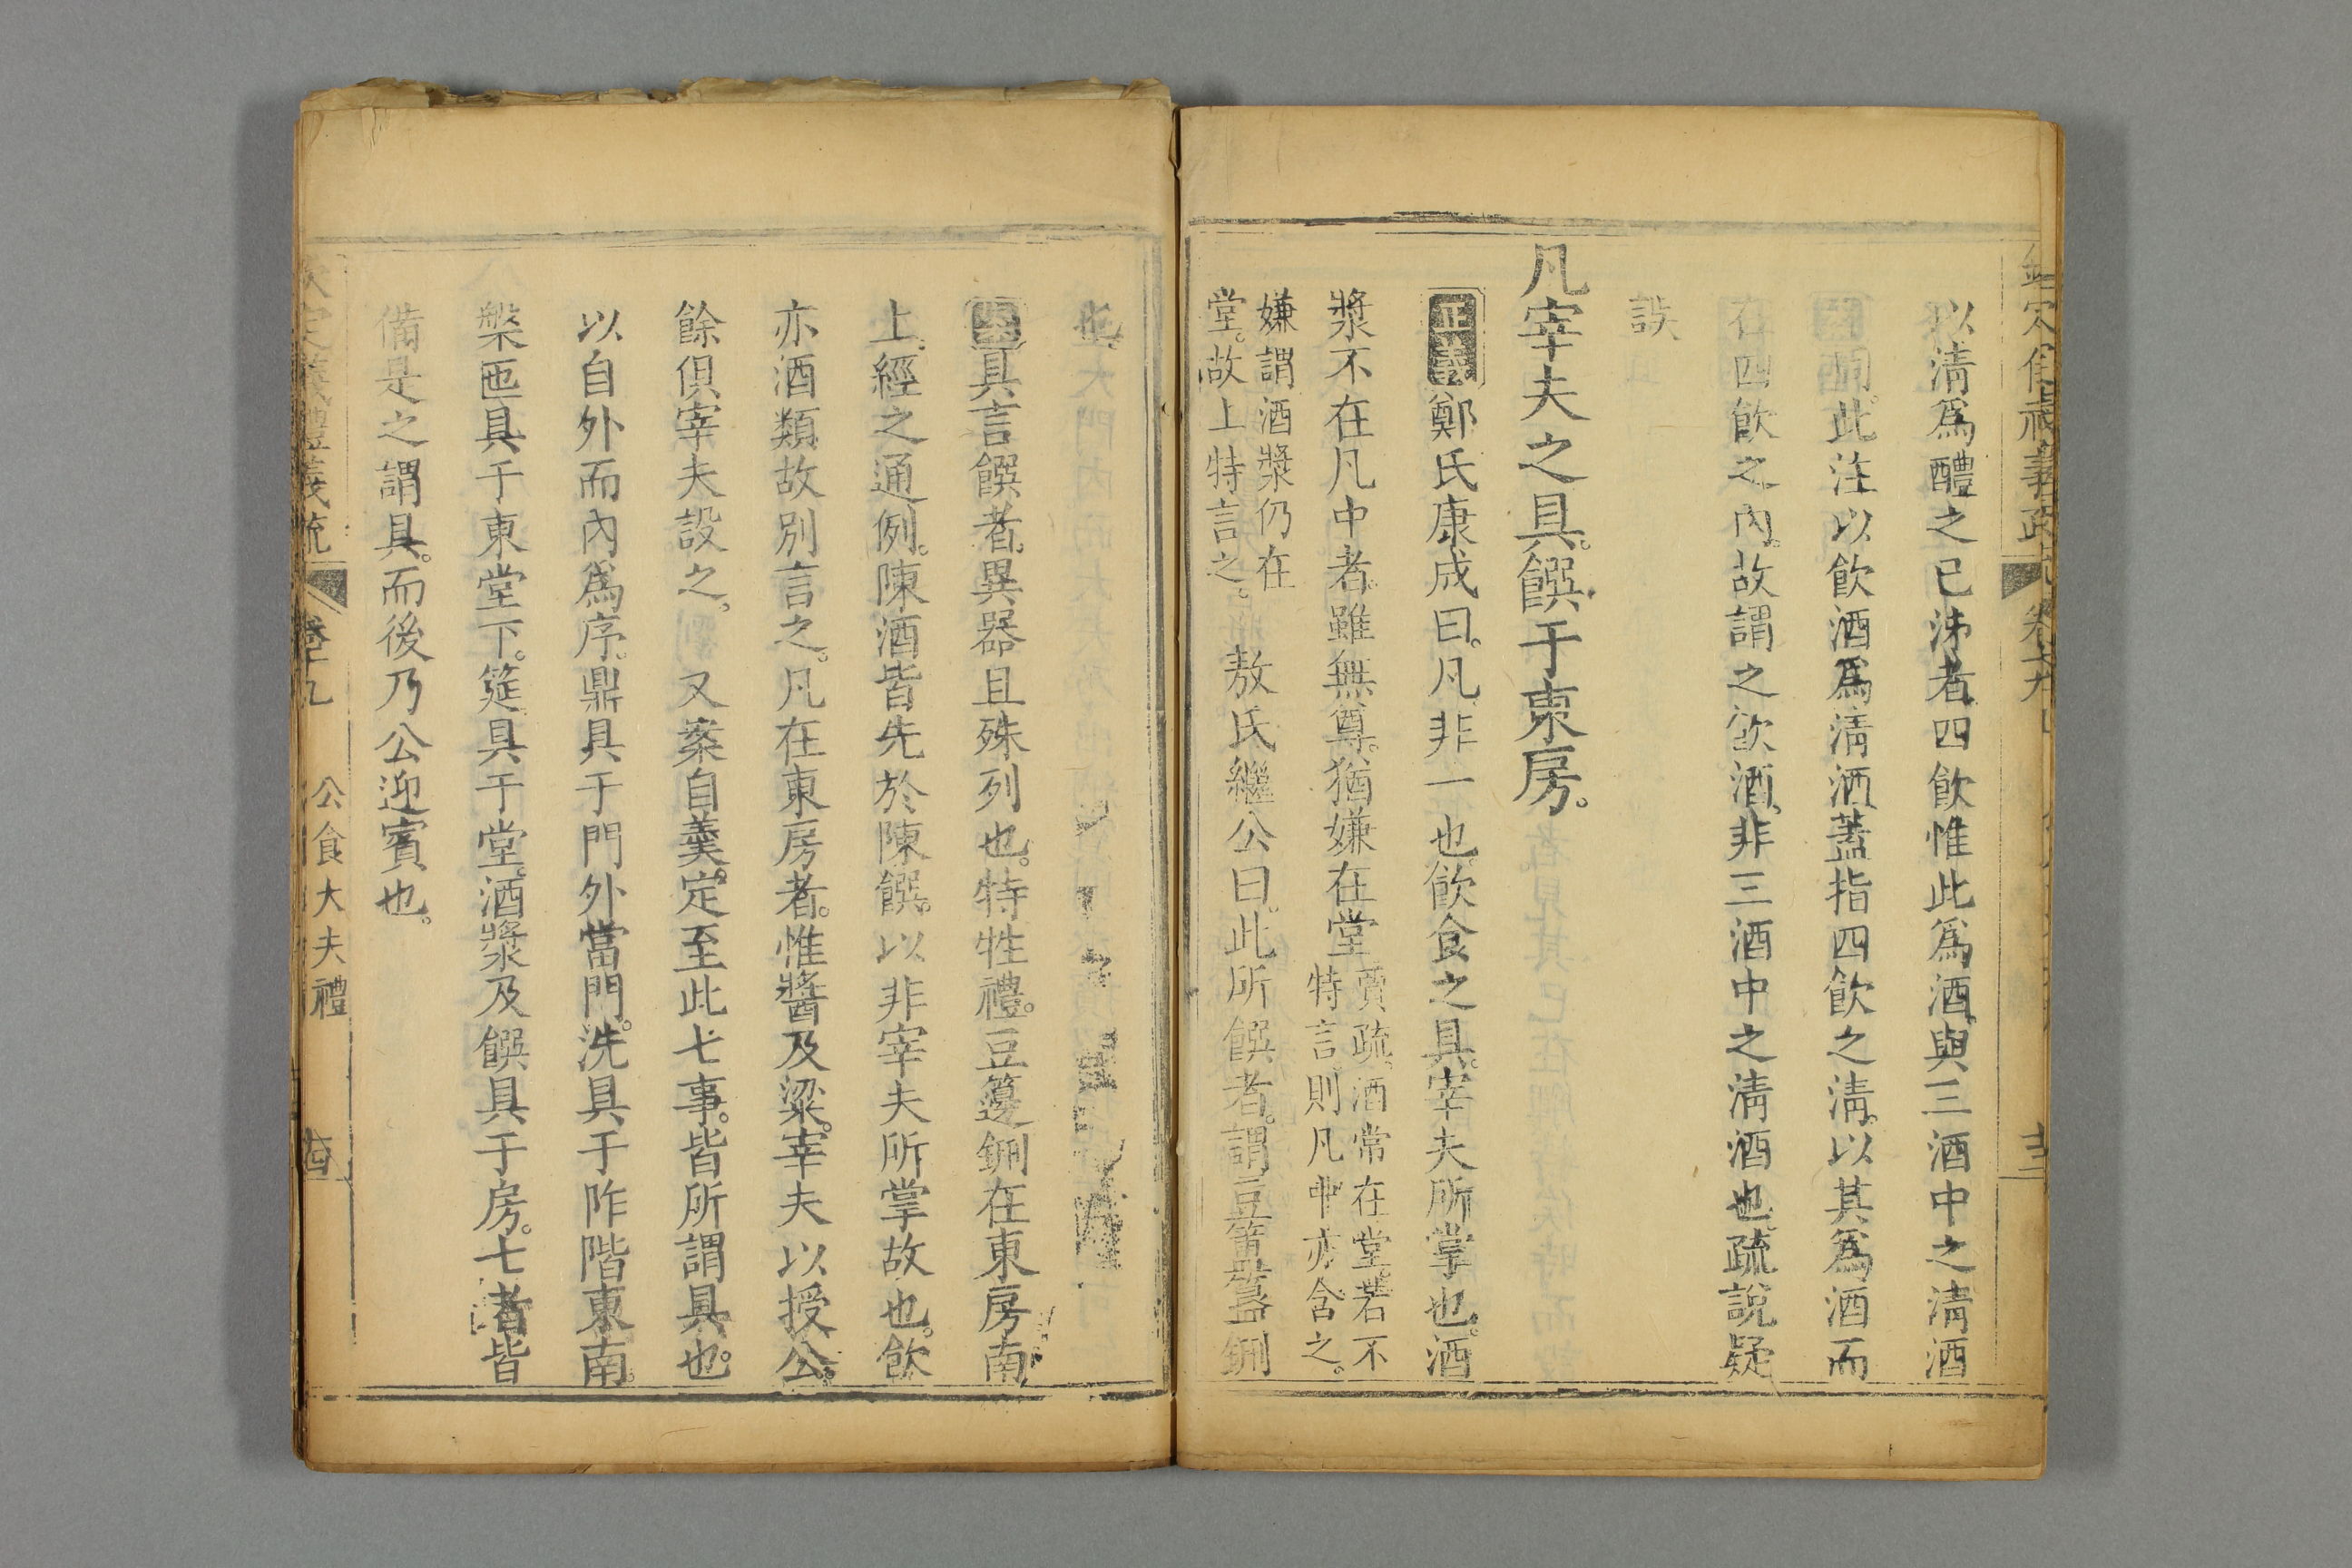 以淸爲醴之已泲者四飮惟此爲酒與三酒中之淸酒
同此注以飮酒爲淸酒蓋指四飮之淸以其爲酒而
在四飮之內故謂之飮酒非三酒中之淸酒也疏說疑
誤
凡宰夫之具饌于東房
正義鄭氏康成曰凡非一也飮食之具宰夫所掌也酒
漿不在凡中者雖無尊猶嫌在堂
賈疏酒常在堂若不
特言則凡中亦含之
嫌謂酒漿仍在
堂故上特言之
敖氏繼公曰此所饌者謂豆簠簋鉶
也
案具言饌者異器且殊列也特牲禮豆籩鉶在東房南
上經之通例陳酒皆先於陳饌以非宰夫所掌故也飮
亦酒類故別言之凡在東房者惟醬及粱宰夫以授公
餘俱宰夫設之 又案自羹定至此七事皆所謂具也
以自外而內爲序鼎具于門外當門洗具于阼階東南
槃匜具于東堂下筵具于堂酒漿及饌具于房七者皆
備是之謂具而後乃公迎賓也
儀禮義疏 卷十九 公食大夫禮